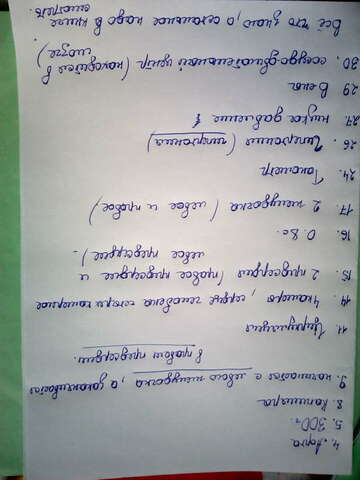 4. Аорта
5. 300г.
8. Капилляра
9. начинается с левого желудочка, а заканчивается
в правом предсердии.
11. Циркуляция
14. 4 камеры, сердце человека четырёх камерное
15. 2 предсердия (правое предсердие и
левое предсердие).
16. 0.8с.
17. 2 желудочка (левое и правое)
24. Тонометр
26. Гипертония (гипертония)
27. низкое давление
29 Вена
30. сосудодвигательный центр (находится в
мозге)
Всё что знаю, остальное надо в книге
смотреть.